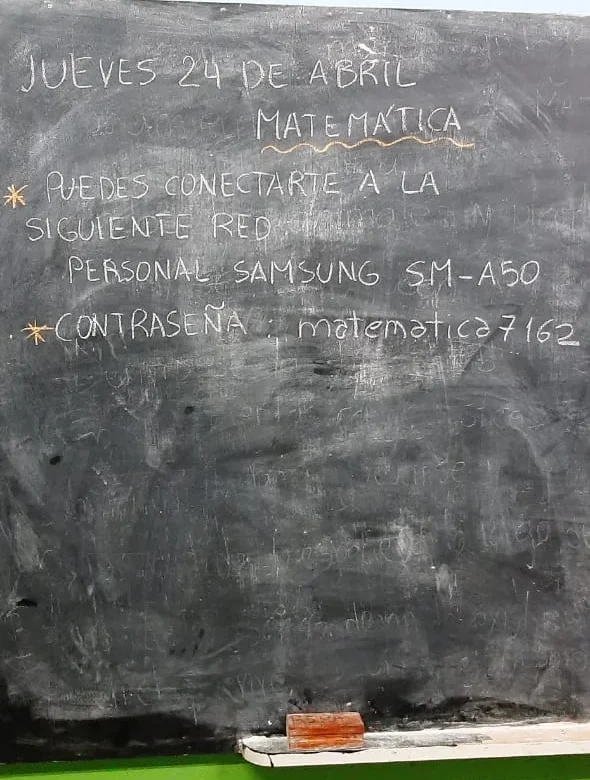 JUEVES 24 DE ABRIL
MATEMÁTICA
* PUEDES CONECTARTE A LA
SIGUIENTE RED:
PERSONAL SAMSUNG SM-A50
* CONTRASEÑA: matematica7162